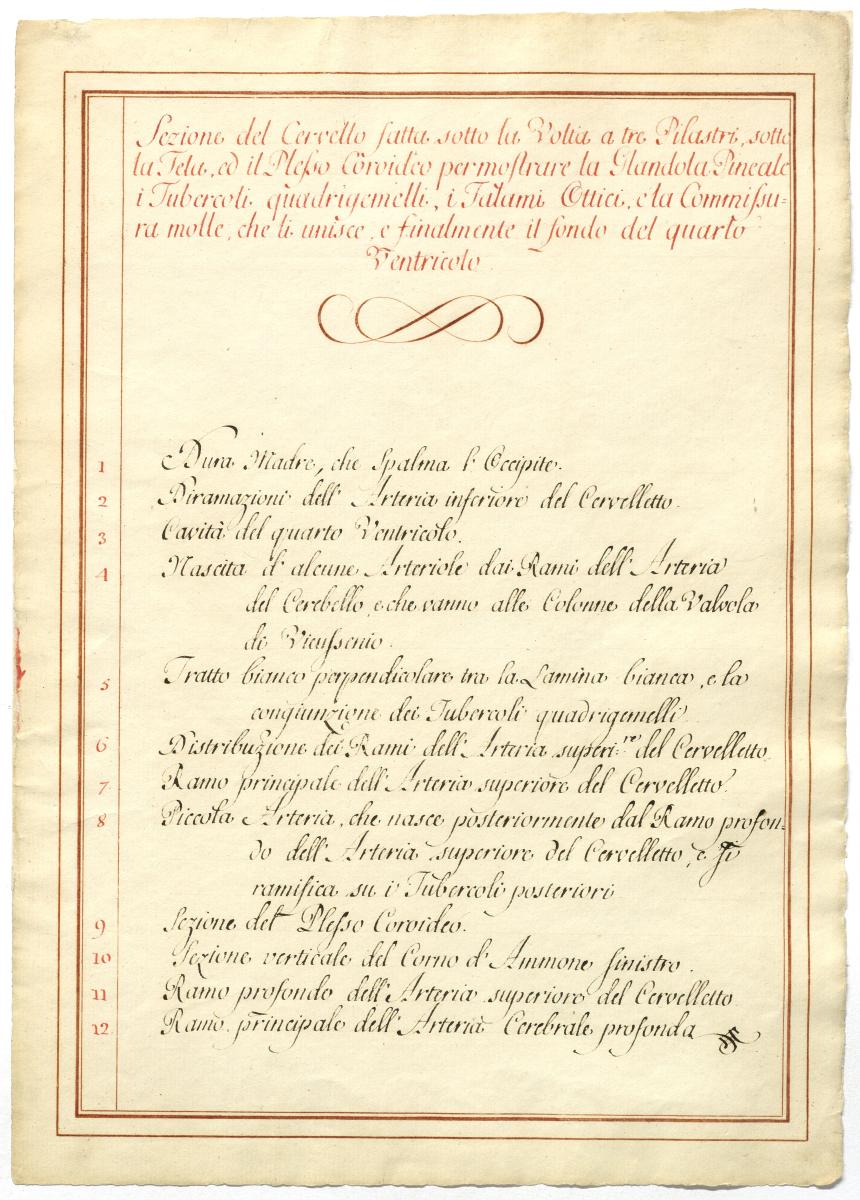 Sezione del Cervello fatta sotto la Volta a tre Pilastri, sotto
la Tela, ed il Plesso Coroideo per mostrare la Glandola Pineale
i Tubercoli quadrigemelli, i Talami Ottici, e la Commissu=
ra molle, che li unisce, e finalmente il fondo del quarto
Ventricolo
1 Dura Madre, che Spalma l' Occipite.
2 Diramazioni dell' Arteria inferiore del Cervelletto.
3 Cavità del quarto Ventricolo.
4 Nascita d' alcune Arteriole dai Rami dell' Arteria
del Cerebello, e che vanno alle Colonne della Valvola
di Vieussenio.
5 Tratto bianco perpendicolare tra la Lamina bianca, e la
congiunzione dei Tubercoli quadrigemelli
6 Distribuzione dei Rami dell' Arteria superi:re del Cervelletto.
7 Ramo principale dell' Arteria superiore del Cervelletto.
8 Piccola Arteria, che nasce posteriormente dal Ramo profon=
do dell' Arteria superiore del Cervelletto, e si
ramifica su i Tubercoli posteriori
9 Sezione del Plesso Coroideo.
10 Sezione verticale del Corno d' Ammone sinistro.
11 Ramo profondo dell' Arteria superiore del Cervelletto
12 Ramo principale dell' Arteria Cerebrale profonda